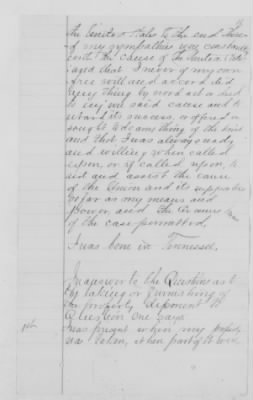 the United States to the end there
of my sympathies was constantly
with the cause of the United States
that I never of my own
free will and accord did
any thing by word act or deed
to injure said cause and to
retard its success, or offered or
sought to do any thing of the kind
and that I was always ready
and willing when called
upon, or if called upon, to
aid and assist the cause
of the Union and its supporters
so far as my means and
power and the circumstances
of the case permitted,
I was born in Tennessee,
In answer to the Questions as to
the taking or furnishing of
the property deponent to
Question One says
1st I was present when my property
was taken,